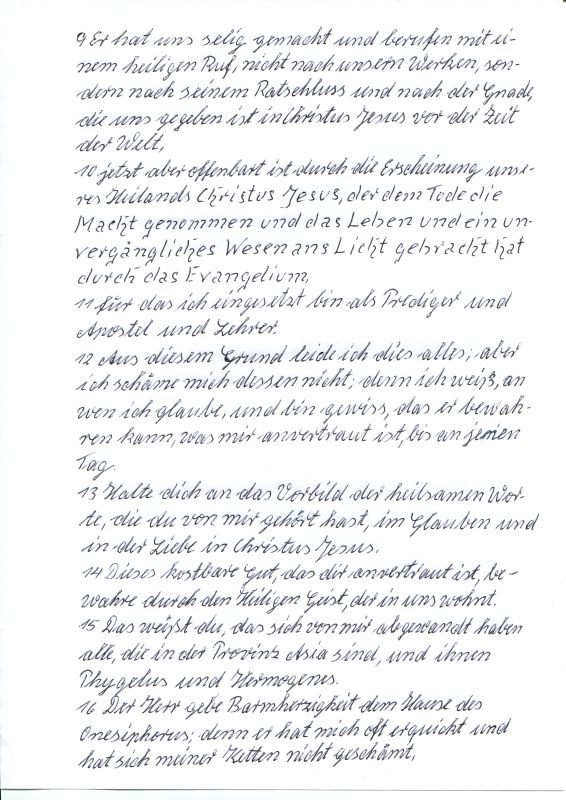 9 Er hat uns selig gemacht und berufen mit ei-
nem heiligen Ruf, nicht nach unsern Werken, son-
dern nach seinem Ratschluss und nach der Gnade,
die uns gegeben ist in Christus Jesus vor der Zeit
der Welt,
10 jetzt aber offenbart ist durch die Erscheinung unse-
res Heilands Christus Jesus, der dem Tode die
Macht genommen und das Leben und ein un-
vergängliches Wesen ans Licht gebracht hat
durch das Evangelium,
11 für das ich eingesetzt bin als Prediger und
Apostel und Lehrer.
12 Aus diesem Grund leide ich dies alles; aber
ich schäme mich dessen nicht; denn ich weiß, an
wen ich glaube, und bin gewiss, das er bewah-
ren kann, was mir anvertraut ist, bis an jenen
Tag.
13 Halte dich an das Vorbild der heilsamen Wor-
te, die du von mir gehört hast, im Glauben und
in der Liebe in Christus Jesus.
14 Dieses kostbare Gut, das dir anvertraut ist, be-
wahre durch den Heiligen Geist, der in uns wohnt.
15 Das weißt du, das sich von mir abgewandt haben
alle, die in der Provinz Asia sind, und ihnen
Phygelus und Hermogenes.
16 Der Herr gebe Barmherzigkeit dem Hause des
Onesiphorus; denn er hat mich oft erquickt und
hat sich meiner Ketten nicht geschämt,